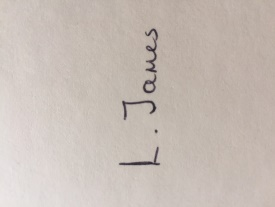 L. James